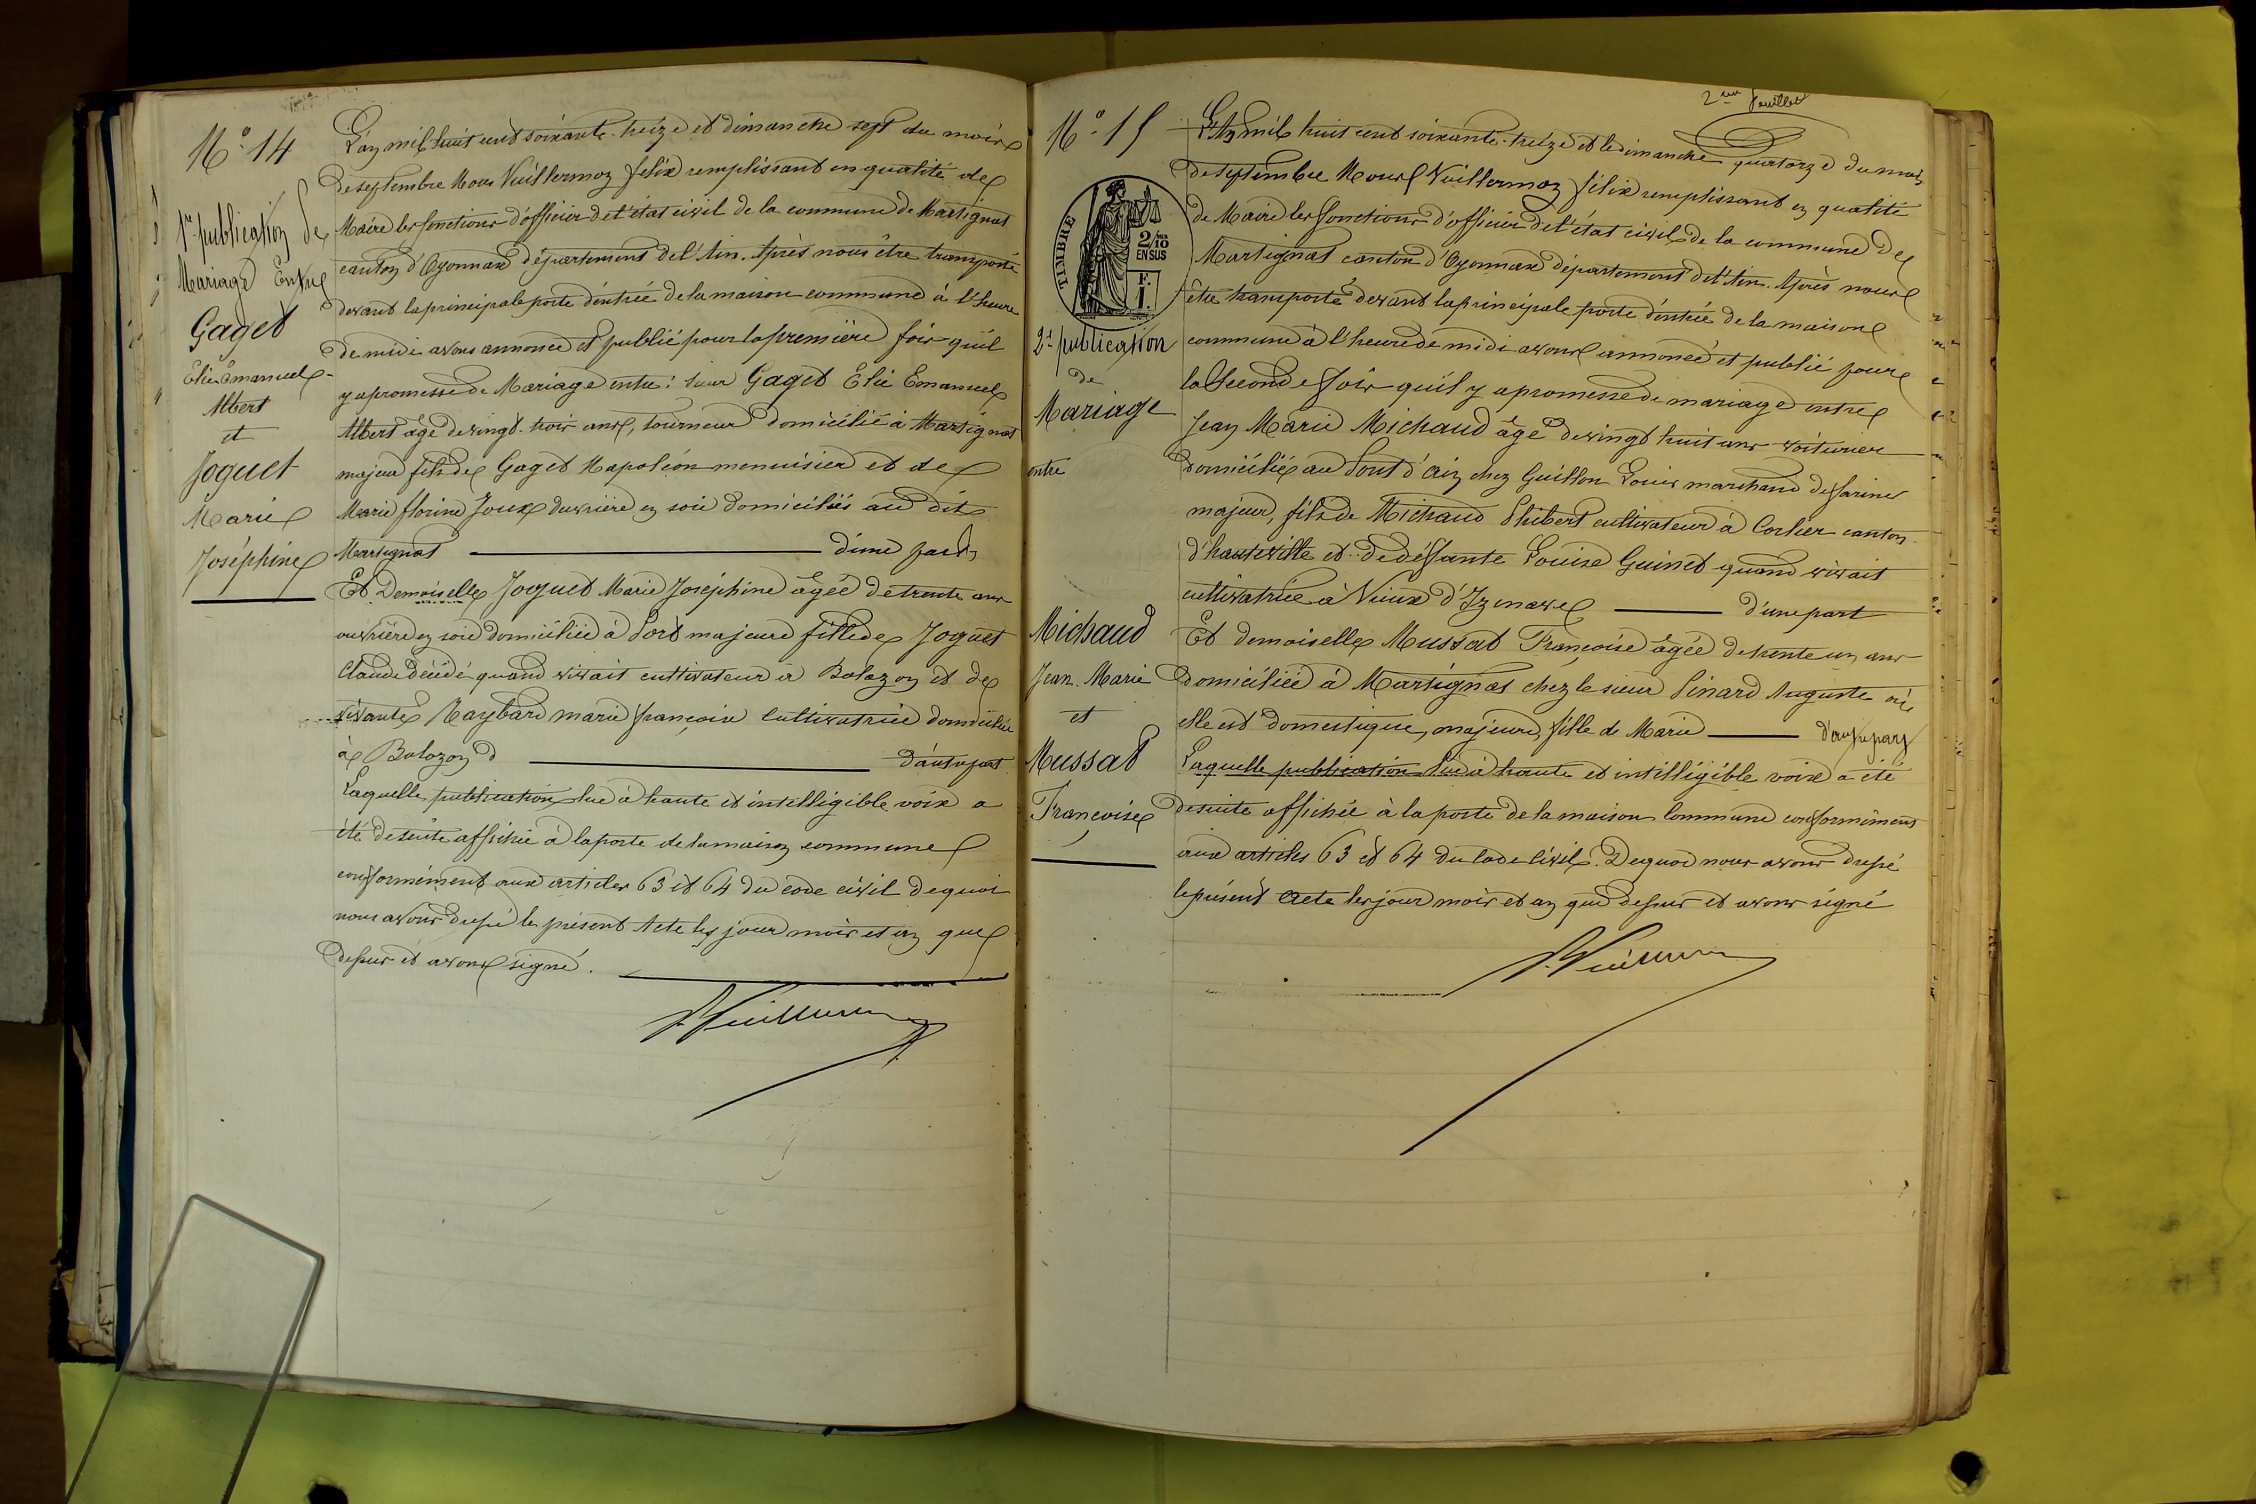 N° 14
1re publication de
Mariage Entre
Gaget
Elie Emanuel
Albert
et
Joguet
Marie
Joséphine
L'an mil huit cent soixante-treize et dimanche sept du mois
de septembre Nous Vuillermoz félix remplissant en qualité de
Maire les fonctions d'officier de l'état civil de la commune de Martignat
canton d'Oyonnax département de l'Ain. Après nous être transporté
devant la principale porte d'entrée de la maison commune à l'heure
de midi avons annoncé et publié pour la première fois qu'il
y a promesse de Mariage entre : sieur Gaget Elie Emanuel
Albert âgé de vingt-trois ans, tourneur domicilié à Martignat
majeur fils de Gaget Napoléon menuisier et de
Marie florine Joux ouvrière en soie domiciliés au dit
Martignat d'une part,
Et Demoiselle Joguet Marie Joséphine âgée de trente ans
ouvrière en soie domiciliée à Port majeure fille de Joguet
Claude décédé quand vivait cultivateur à Bolozon et de
vivante Raybard marie françoise cultivatrice domiciliée
à Bolozon d'autre part
Laquelle publication lue à haute et intelligible voix a
été de suite affichée à la porte de la maison commune
conformément aux articles 63 et 64 du code civil de quoi
nous avons dressé le présent Acte les jour mois et an que
dessus et avons signé.
2me feuillet
N° 15
TIMBRE
2/10
EN SUS
F.
1.
2e publication
de
Mariage
entre
Michaud
Jean-Marie
et
Mussat
Françoise
L'An mil huit cent soixante-treize et le dimanche quatorze du mois
de septembre Nous Vuillermoz félix remplissant en qualité
de Maire les fonctions d'officier de l'état civil de la commune de
Martignat canton d'Oyonnax département de l'Ain. Après nous
être transporté devant la principale porte d'entrée de la maison
commune à l'heure de midi avons annoncé et publié pour
la Seconde fois qu'il y a promesse de mariage entre
Jean Marie Michaud âgé de vingt huit ans voiturier
domicilié au Pont d'Ain chez Guillon Louis marchand de farines
majeur, fils de Michaud Phibert cultivateur à Corlier canton
d'hauteville et de défunte Louise Guinet quand vivait
cultivatrice à Vieux d'Izenave d'une part
Et demoiselle Mussat Françoise âgée de trente un ans
domiciliée à Martignat chez le sieur Pinard Auguste où
elle est domestique, majeure, fille de Marie d'autre part
Laquelle publication lue à haute et intelligible voix a été
de suite affichée à la porte de la maison commune conformément
aux articles 63 et 64 du Code Civil. De quoi nous avons dressé
le présent Acte les jour mois et an que dessus et avons signé